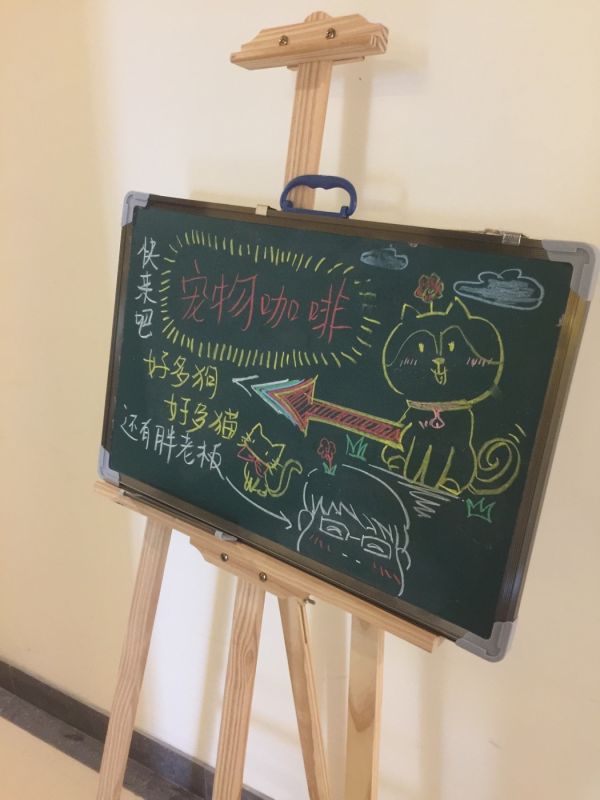 快来吧
宠物咖啡
好多狗
好多猫
还有胖老板